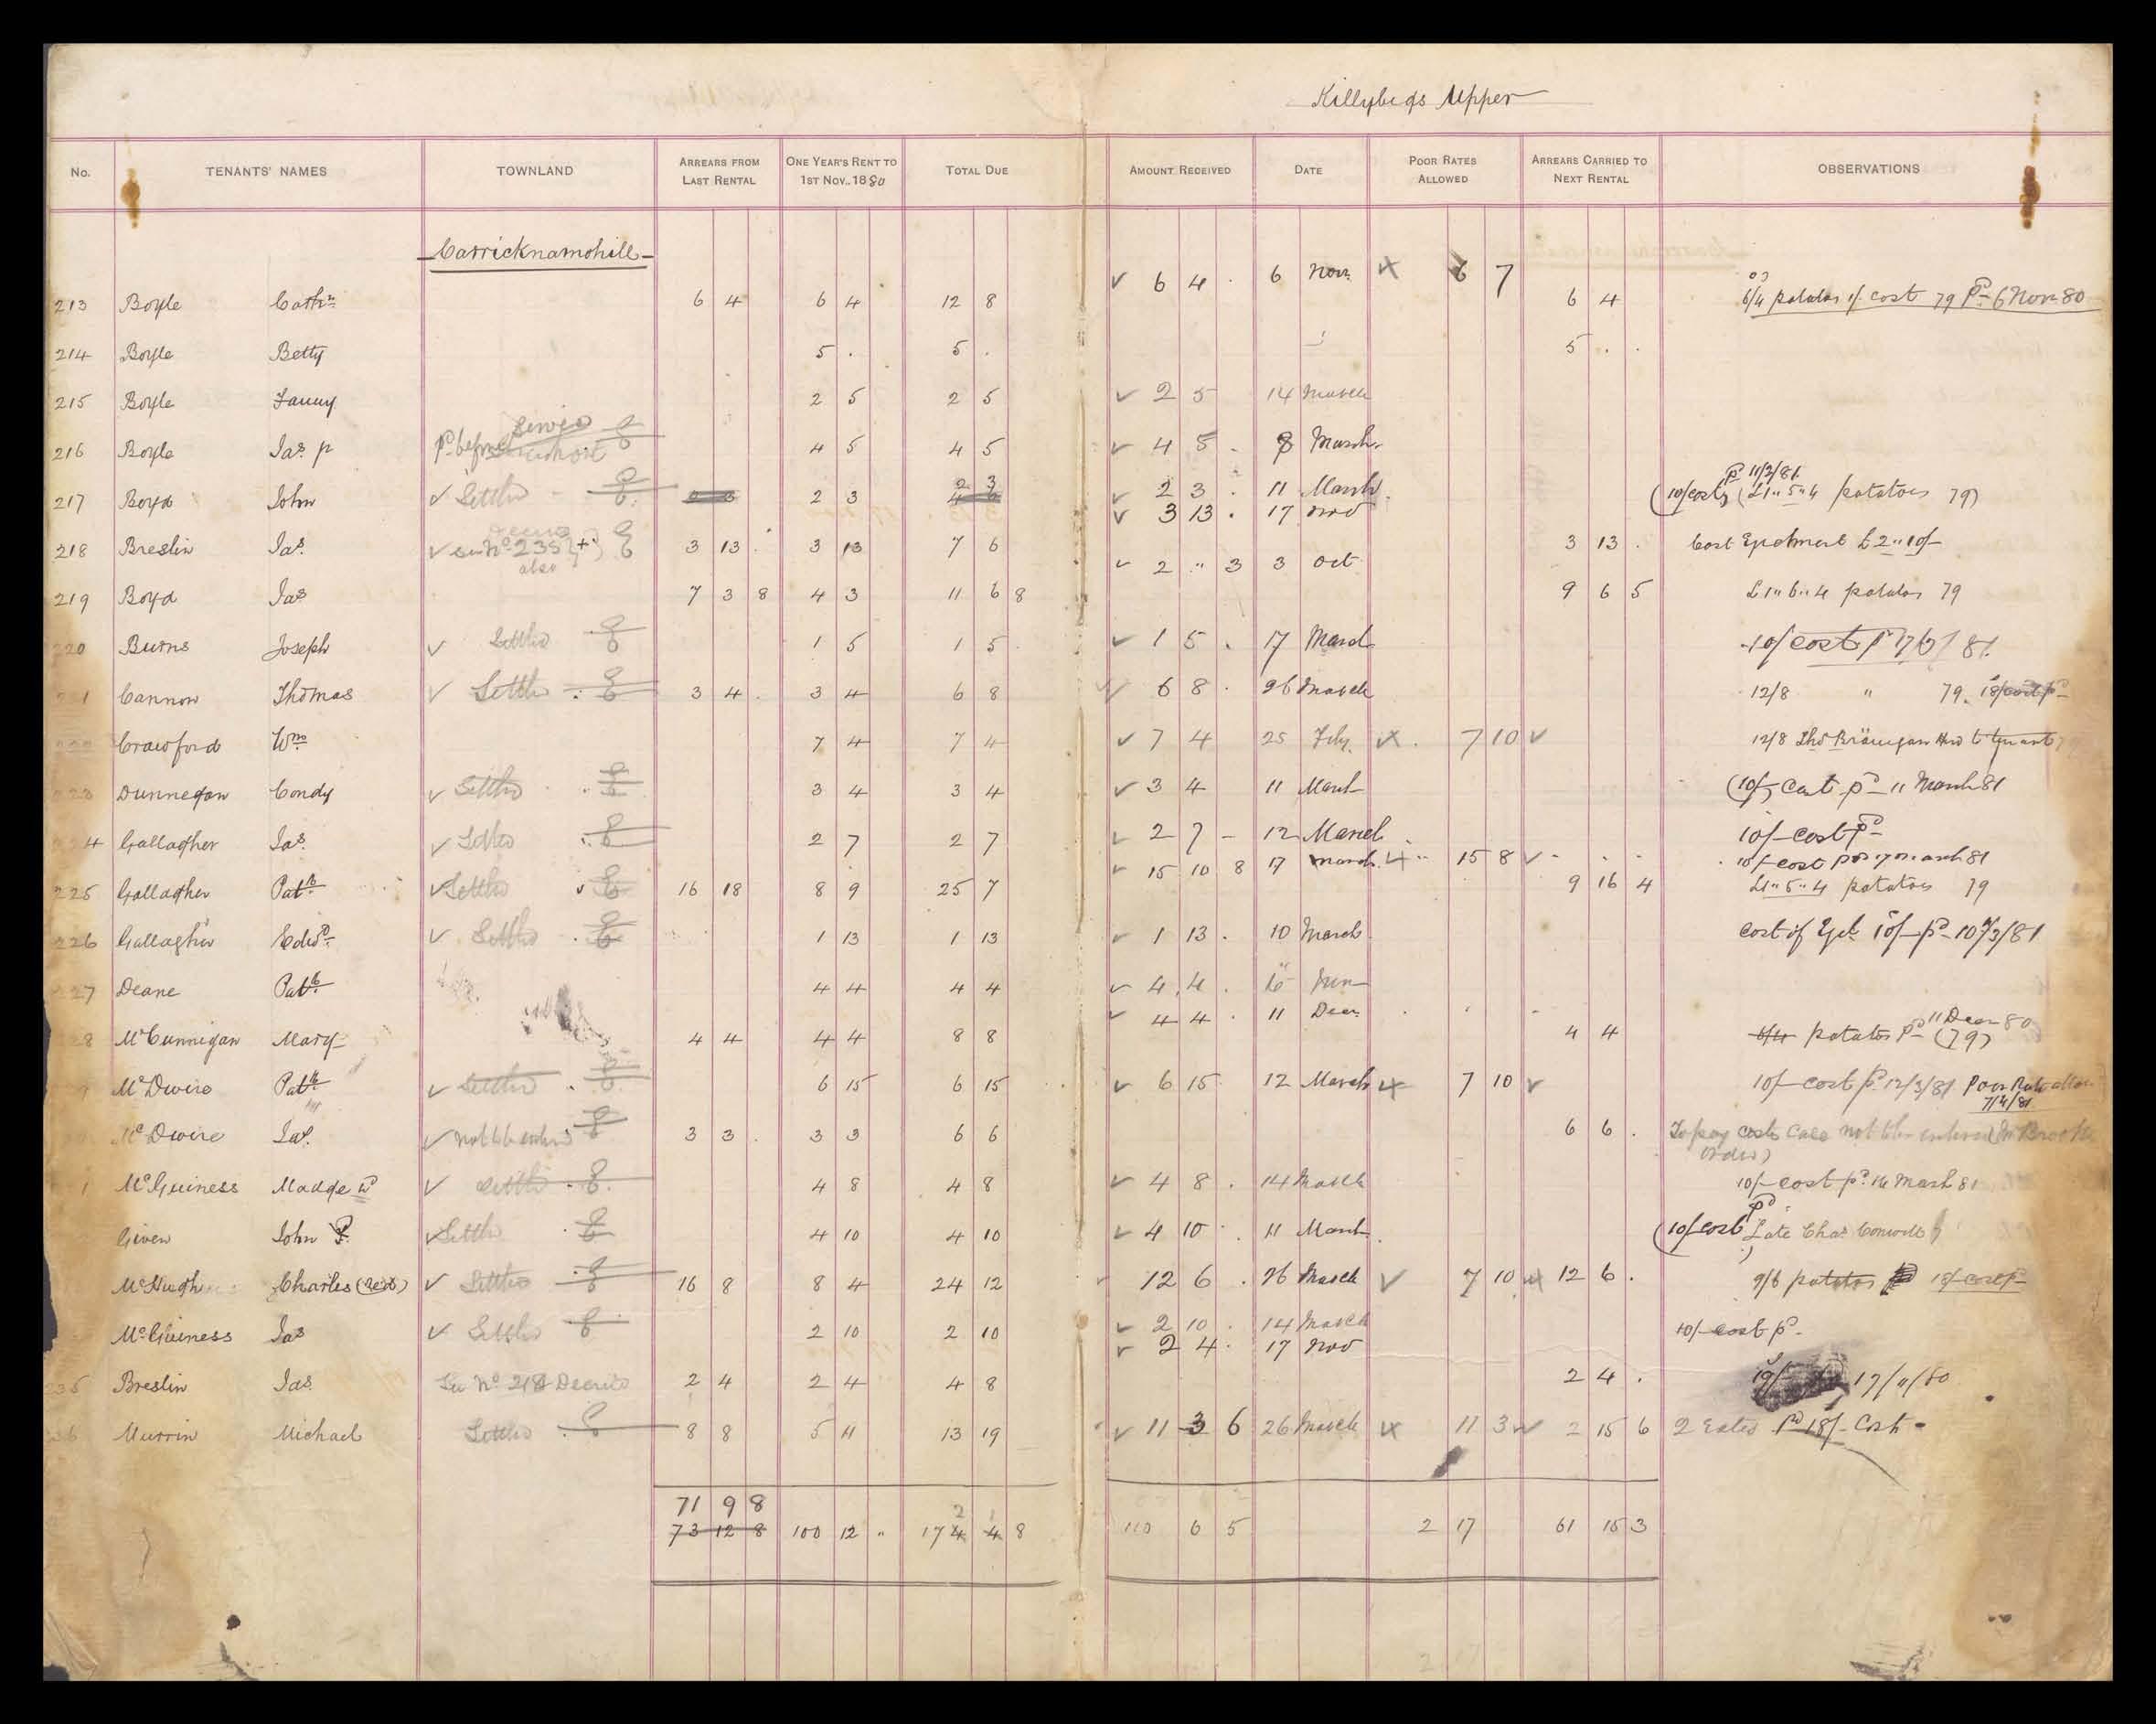 Killybegs Upper
No. TENANTS' NAMES TOWNLAND ARREARS FROM LAST RENTAL ONE YEAR'S RENT TO 1ST NOV. 1880 TOTAL DUE AMOUNT RECEIVED DATE POOR RATES ALLOWED ARREARS CARRIED TO NEXT RENTAL OBSERVATIONS
Carricknamohill
213 Boyle Cath 6 4 6 4 12 8 6 4 6 Nov 6 7 6 4 6/4 potatoes 1/ cost 79 pd 6 Nov 80
214 Boyle Betty 5 . 5 . 5 . .
215 Boyle Fanny 2 5 2 5 2 5 14 March
216 Boyle Jas. p pd before 4 5 4 5 4 5 8 March
217 Boyd John Settled 2 3 2 3 2 3 11 March (10/ cost) pd 11/3/81 (£1" 5" 4 potatoes 79)
218 Breslin Jas. see No 235 also 3 13 3 13 7 6 3 13 17 Nov 3 13 Cost Ejectment £2"10/-
219 Boyd Jas 7 3 8 4 3 11 6 8 2 " 3 3 Oct 9 6 5 £1" 6" 4 potatoes 79
220 Burns Joseph Settled 1 5 1 5 1 5 17 March 10/ cost pd 81
1 Cannon Thomas Settled 3 4 3 4 6 8 6 8 26 March 12/8 " 79. 18/ cost pd
Crawford Wm 7 4 7 4 7 4 25 Feby 7 10 12/8
223 Dunnegan Condy Settled 3 4 3 4 3 4 11 March (10/-) cost pd 11 March 81
4 Gallagher Jas. Settled 2 7 2 7 2 7 - 12 March 10/- cost pd
225 Gallagher Patk Settled 16 18 8 9 25 7 15 10 8 17 March 15 8 9 16 4 10/- cost pd 17 March 81
£1" 5" 4 potatoes 79
226 Gallagher Edwd Settled 1 13 1 13 1 13 10 March cost of Ejt 10/- pd 10/3/81
227 Deane Patk 4 4 4 4 4 4
8 McCunnigan Mary 4 4 4 4 8 8 4 4 11 Decr 4 4 6/4 potatoes pd 11 Decr 80 (79)
9 McDwire Patk Settled 6 15 6 15 6 15 12 March 7 10 10/- cost pd 12/3/81 Poor Rate
McDwire Jas. not to be entered 3 3 3 3 6 6 6 6 To pay costs Case not to be entered (Mr Brooke order)
1 McGuiness Madge wd Settled 4 8 4 8 4 8 14 March 10/- cost pd 14 March 81
Given John Settled 4 10 4 10 4 10 11 March (10/ cost pd) Late Chas Conwell
McHugh Charles (Red) Settled 16 8 8 4 24 12 12 6 26 March 7 10 12 6 9/6 potatoes 18/ cost pd
McGuiness Jas Settled 2 10 2 10 2 10 14 March 10/- cost pd
235 Breslin Jas. See No 218 Decree 2 4 2 4 4 8 2 4 17 Nov 2 4 10/- 17/11/80
36 Murrin Michael Settled 8 8 5 11 13 19 11 3 6 26 March 11 3 2 15 6 2 Ejtes pd 18/- Cost
71 9 8
73 12 8 100 12 " 172 1 8 110 6 5 2 17 61 15 3